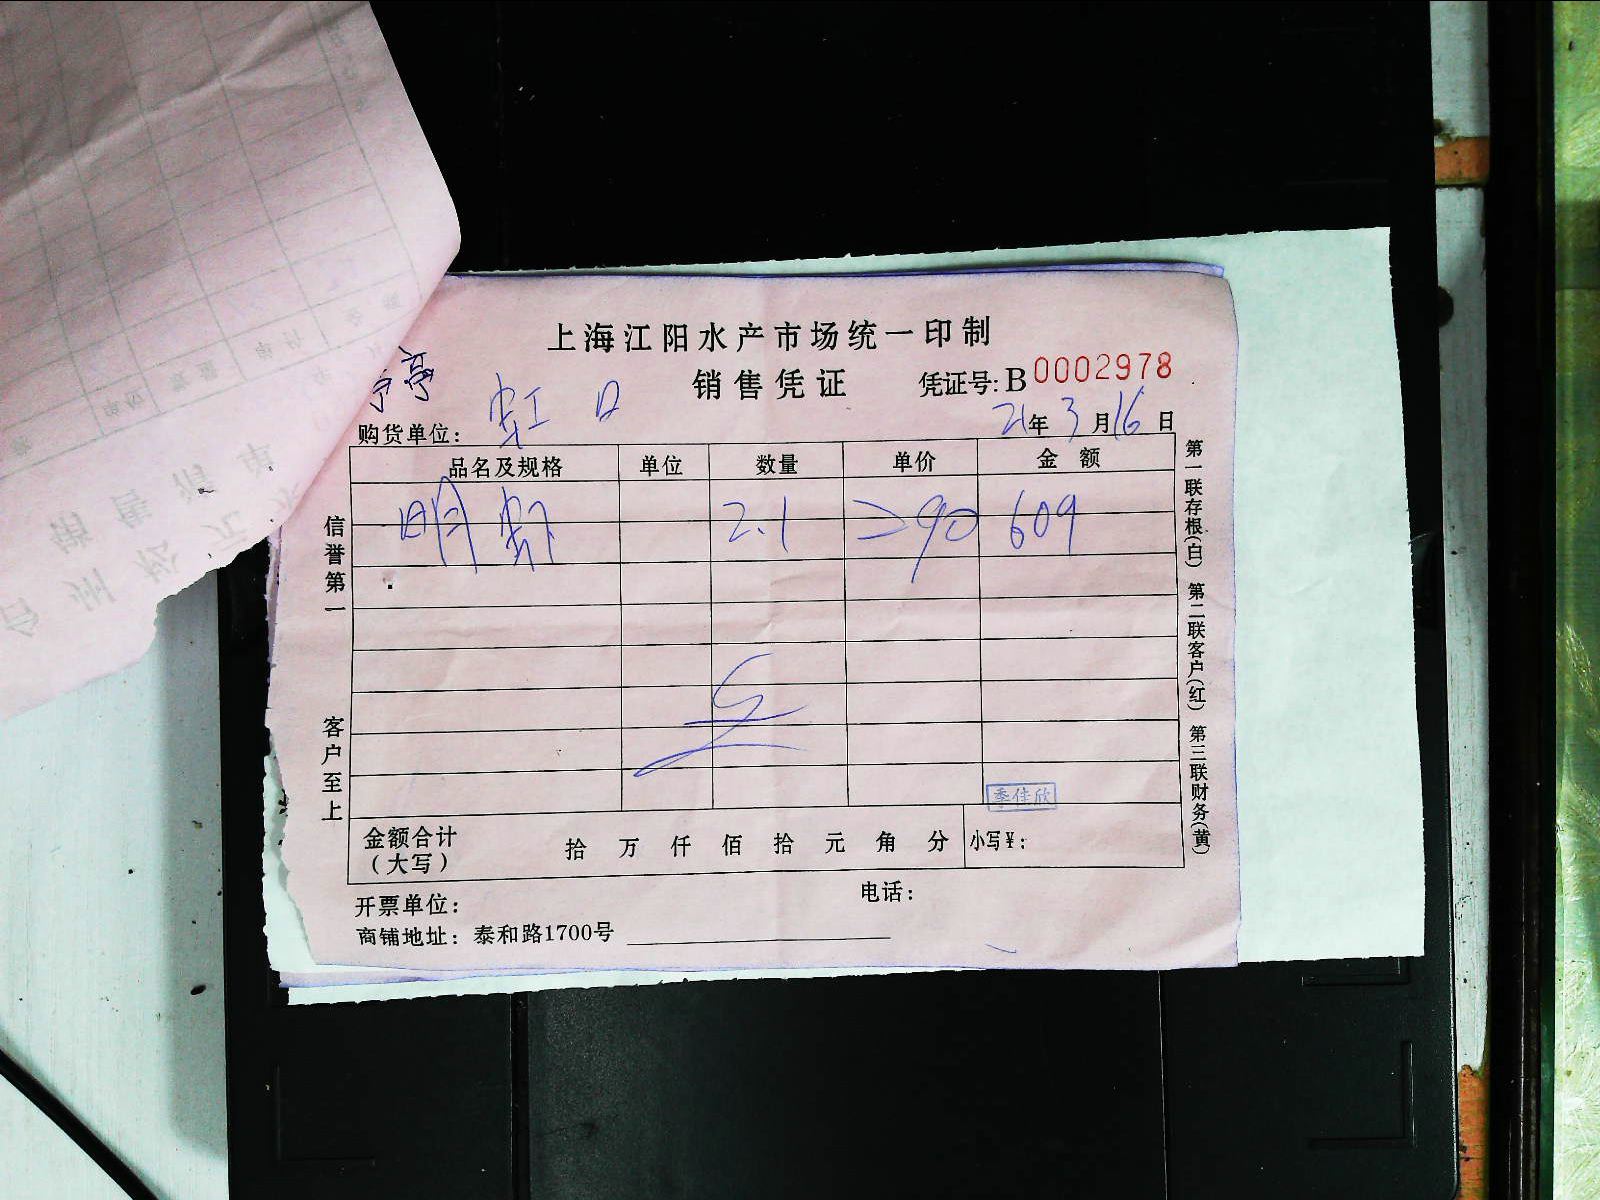 上海江阳水产市场统一印制
销售凭证 凭证号: B 0002978
亭
购货单位: 虹口 21年3月16日
品名及规格 单位 数量 单价 金额
明虾 2.1 290 609
信誉第一
客户至上
第一联存根(白) 第二联客户(红) 第三联财务(黄)
季佳欣
金额合计(大写) 拾 万 仟 佰 拾 元 角 分 小写¥:
开票单位: 电话:
商铺地址: 泰和路1700号